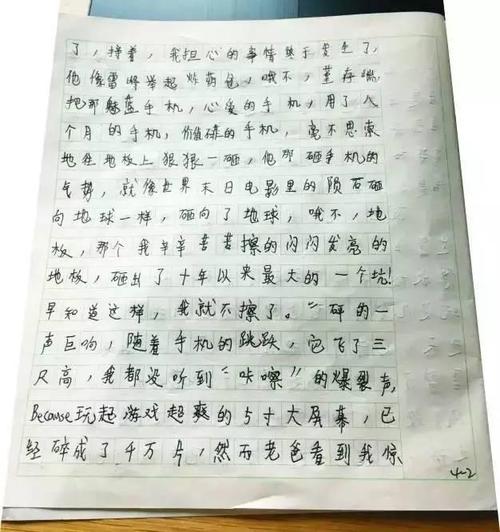 了，接着，我担心的事情终于发生了，
他像雷峰举起炸药包，哦不，董存瑞，
把那魅蓝手机，心爱的手机，用了八
个月的手机，价值碌的手机，毫不思索
地往地板上狠狠一砸，他那砸手机的
气势，就像世界末日电影里的陨石砸
向地球一样，砸向了地球，哦不，地
板，那个我辛辛苦苦擦的闪闪发亮的
地板，砸出了十年以来最大的一个坑！
早知道这样，我就不擦了。"砰的一
声巨响，随着手机的跳跃，它飞了三
尺高，我都没听到"咔嚓"的爆裂声，
Because玩起游戏超爽的5寸大屏幕，已
经碎成了千万片，然而老爸看到我惊
4-2